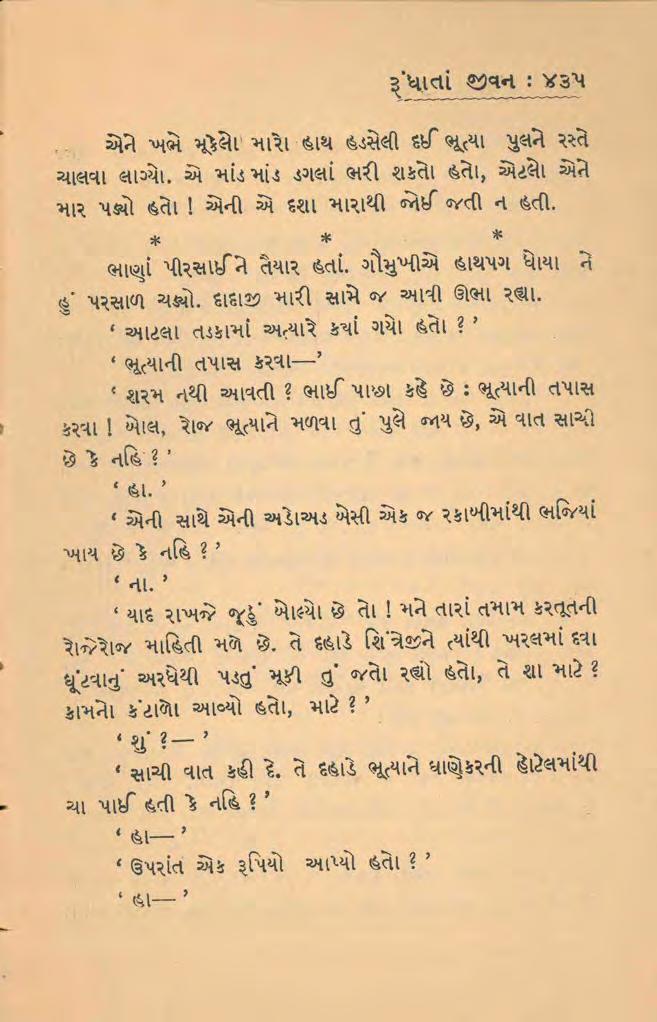 રૂંધાતાં જીવન : ૪૩૫
એને ખભે મૂકેલો મારો હાથ હડસેલી દઈ ભૂત્યા પુલને રસ્તે
ચાલવા લાગ્યો. એ માંડ માંડ ડગલાં ભરી શકતો હતો, એટલો એને
માર પડ્યો હતો ! એની એ દશા મારાથી જોઈ જતી ન હતી.
* * *
ભાણાં પીરસાઈને તૈયાર હતાં. ગૌમુખીએ હાથપગ ધોયા ને
હું પરસાળ ચડ્યો. દાદાજી મારી સામે જ આવી ઊભા રહ્યા.
‘ આટલા તડકામાં અત્યારે ક્યાં ગયો હતો ? ’
‘ ભૂત્યાની તપાસ કરવા—’
‘ શરમ નથી આવતી ? ભાઈ પાછા કહે છે : ભૂત્યાની તપાસ
કરવા ! બોલ, રોજ ભૂત્યાને મળવા તું પુલે જાય છે, એ વાત સાચી
છે કે નહિ ? ’
‘ હા. ’
‘ એની સાથે એની અડોઅડ બેસી એક જ રકાબીમાંથી ભજિયાં
ખાય છે કે નહિ ? ’
‘ ના. ’
‘ યાદ રાખજે જૂઠ્ઠું બોલ્યો છે તો ! મને તારાં તમામ કરતૂતની
રોજેરોજ માહિતી મળે છે. તે દહાડે શિંત્રેજીને ત્યાંથી ખરલમાં દવા
ઘૂંટવાનું અરધેથી પડતું મૂકી તું જતો રહ્યો હતો, તે શા માટે ?
કામનો કંટાળો આવ્યો હતો, માટે ? ’
‘ શું ?— ’
‘ સાચી વાત કહી દે. તે દહાડે ભૂત્યાને ઘાણેકરની હોટેલમાંથી
ચા પાઈ હતી કે નહિ ? ’
‘ હા— ’
‘ ઉપરાંત એક રૂપિયો આપ્યો હતો ? ’
‘ હા— ’